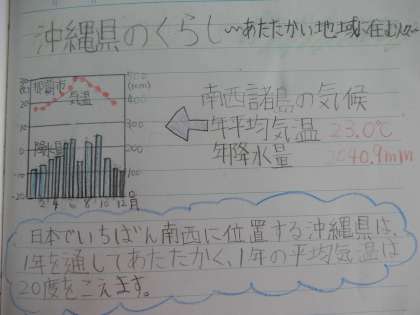 沖縄県のくらし 〜あたたかい地域に住む人々〜
那覇市
気温
500
(mm)
400
300
200
100
0
降水量
2 4 6 8 10 12月
南西諸島の気候
年平均気温 23.0℃
年降水量 2040.9mm
日本でいちばん南西に位置する沖縄県は、
1年を通してあたたかく、1年の平均気温は
20度をこえます。